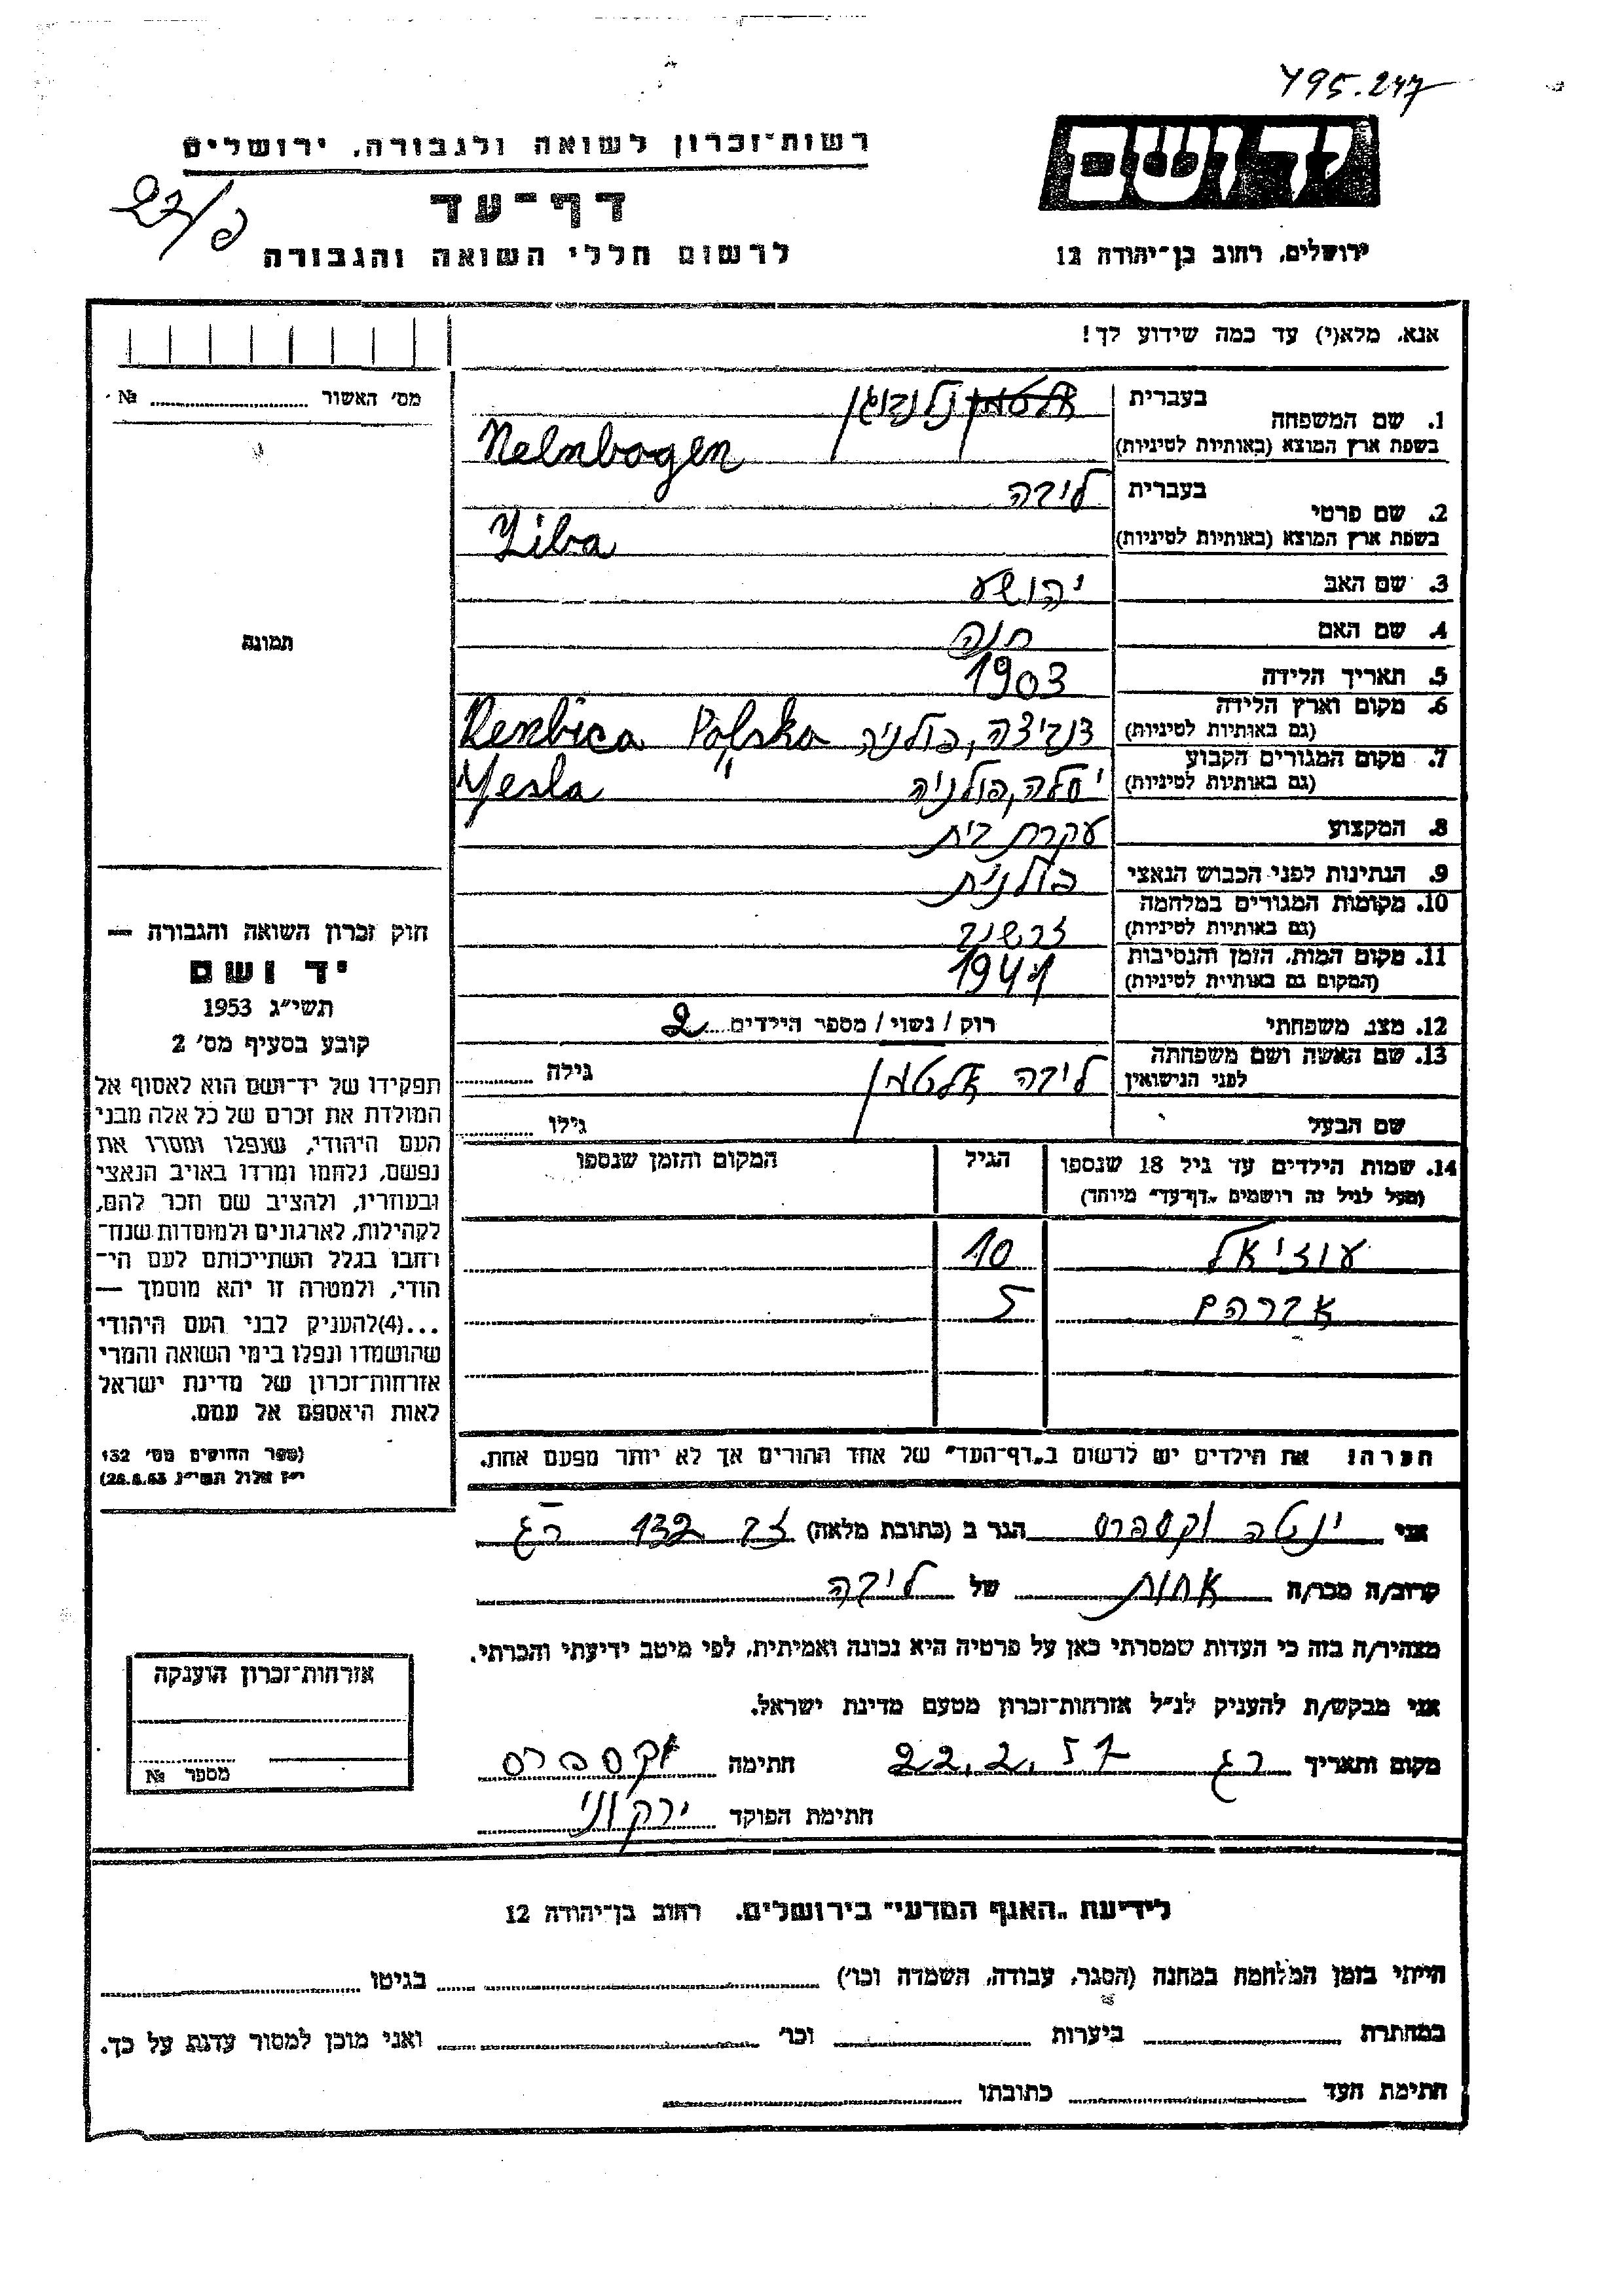 495.247
יד ושם
רשות־זכרון לשואה ולגבורה, ירושלים
דף־עד
לרשום חללי השואה והגבורה
ירושלים, רחוב בן־יהודה 12
אנא, מלא(י) עד כמה שידוע לך!
מס׳ האשור № 
1. שם המשפחה
בעברית
אלטמן נלנבוגן
בשפת ארץ המוצא (באותיות לטיניות)
Nelnbogen
2. שם פרטי
בעברית
ליבה
בשפת ארץ המוצא (באותיות לטיניות)
Liba
3. שם האב יהושע
4. שם האם חנה
5. תאריך הלידה 1903
6. מקום וארץ הלידה
(גם באותיות לטיניות) דנביצה, פולניה Denbica Polska
7. מקום המגורים הקבוע
(גם באותיות לטיניות) יסלה, פולניה Yesla
8. המקצוע עקרת בית
9. הנתינות לפני הכבוש הנאצי פולנית
10. מקומות המגורים במלחמה
(גם באותיות לטיניות)
11. מקום המות, הזמן והנסיבות
(המקום גם באותיות לטיניות) 1941
12. מצב משפחתי רוק / נשוי / מספר הילדים 2
13. שם האשה ושם משפחתה
לפני הנישואין ליבה אלטמן גילה
שם הבעל גילו
14. שמות הילדים עד גיל 18 שנספו
(מעל לגיל זה רושמים „דף־עד״ מיוחד)
הגיל
המקום והזמן שנספו
עוזיאל 10
אברהם 5
הערה: את הילדים יש לרשום ב„דף־העד״ של אחד ההורים אך לא יותר מפעם אחת.
תמונה
חוק זכרון השואה והגבורה —
יד ושם
תשי״ג 1953
קובע בסעיף מס׳ 2
תפקידו של יד־ושם הוא לאסוף אל
המולדת את זכרם של כל אלה מבני
העם היהודי, שנפלו ומסרו את
נפשם, נלחמו ומרדו באויב הנאצי
ובעוזריו, ולהציב שם וזכר להם,
לקהילות, לארגונים ולמוסדות שנח־
רבו בגלל השתייכותם לעם הי־
הודי, ולמטרה זו יהא מוסמך —
...(4)להעניק לבני העם היהודי
שהושמדו ונפלו בימי השואה והמרי
אזרחות־זכרון של מדינת ישראל
לאות היאספם אל עמם.
(ספר החוקים מס׳ 132
י״ז אלול תשי״ג 28.8.53)
אני יוטה וקספרס הגר ב (כתובת מלאה) 132 רג
קרוב/ה מכר/ה אחות של ליבה
מצהיר/ה בזה כי העדות שמסרתי כאן על פרטיה היא נכונה ואמיתית, לפי מיטב ידיעתי והכרתי.
אני מבקש/ת להעניק לנ״ל אזרחות־זכרון מטעם מדינת ישראל.
מקום ותאריך רג 22.2.57 חתימה וקספרס
חתימת הפוקד ירקוני
אזרחות־זכרון הוענקה
מספר №
לידיעת „האגף המדעי״ בירושלים, רחוב בן־יהודה 12
הייתי בזמן המלחמה במחנה (הסגר, עבודה, השמדה וכו׳) בגיטו
במחתרת ביערות וכו׳ ואני מוכן למסור עדות על כך.
חתימת העד כתובתו